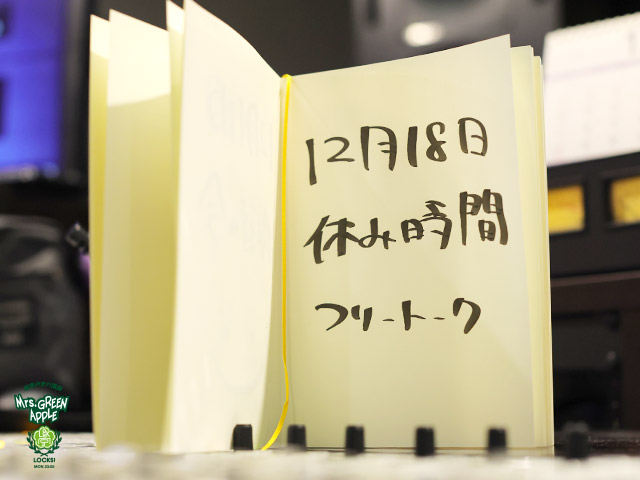 12月18日
休み時間
フリートーク
Mrs. GREEN
APPLE
LOCKS!